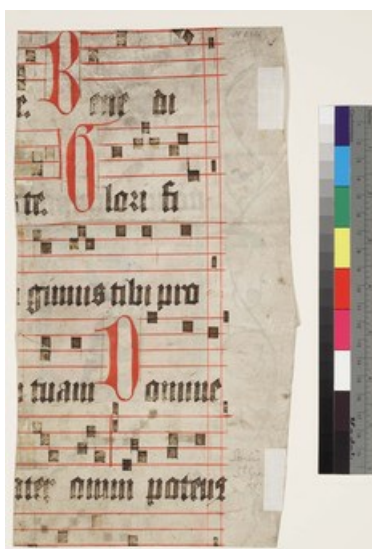 te. Bene di
te. Glori fi
gimus tibi pro
tuam Domine
ater omni potens